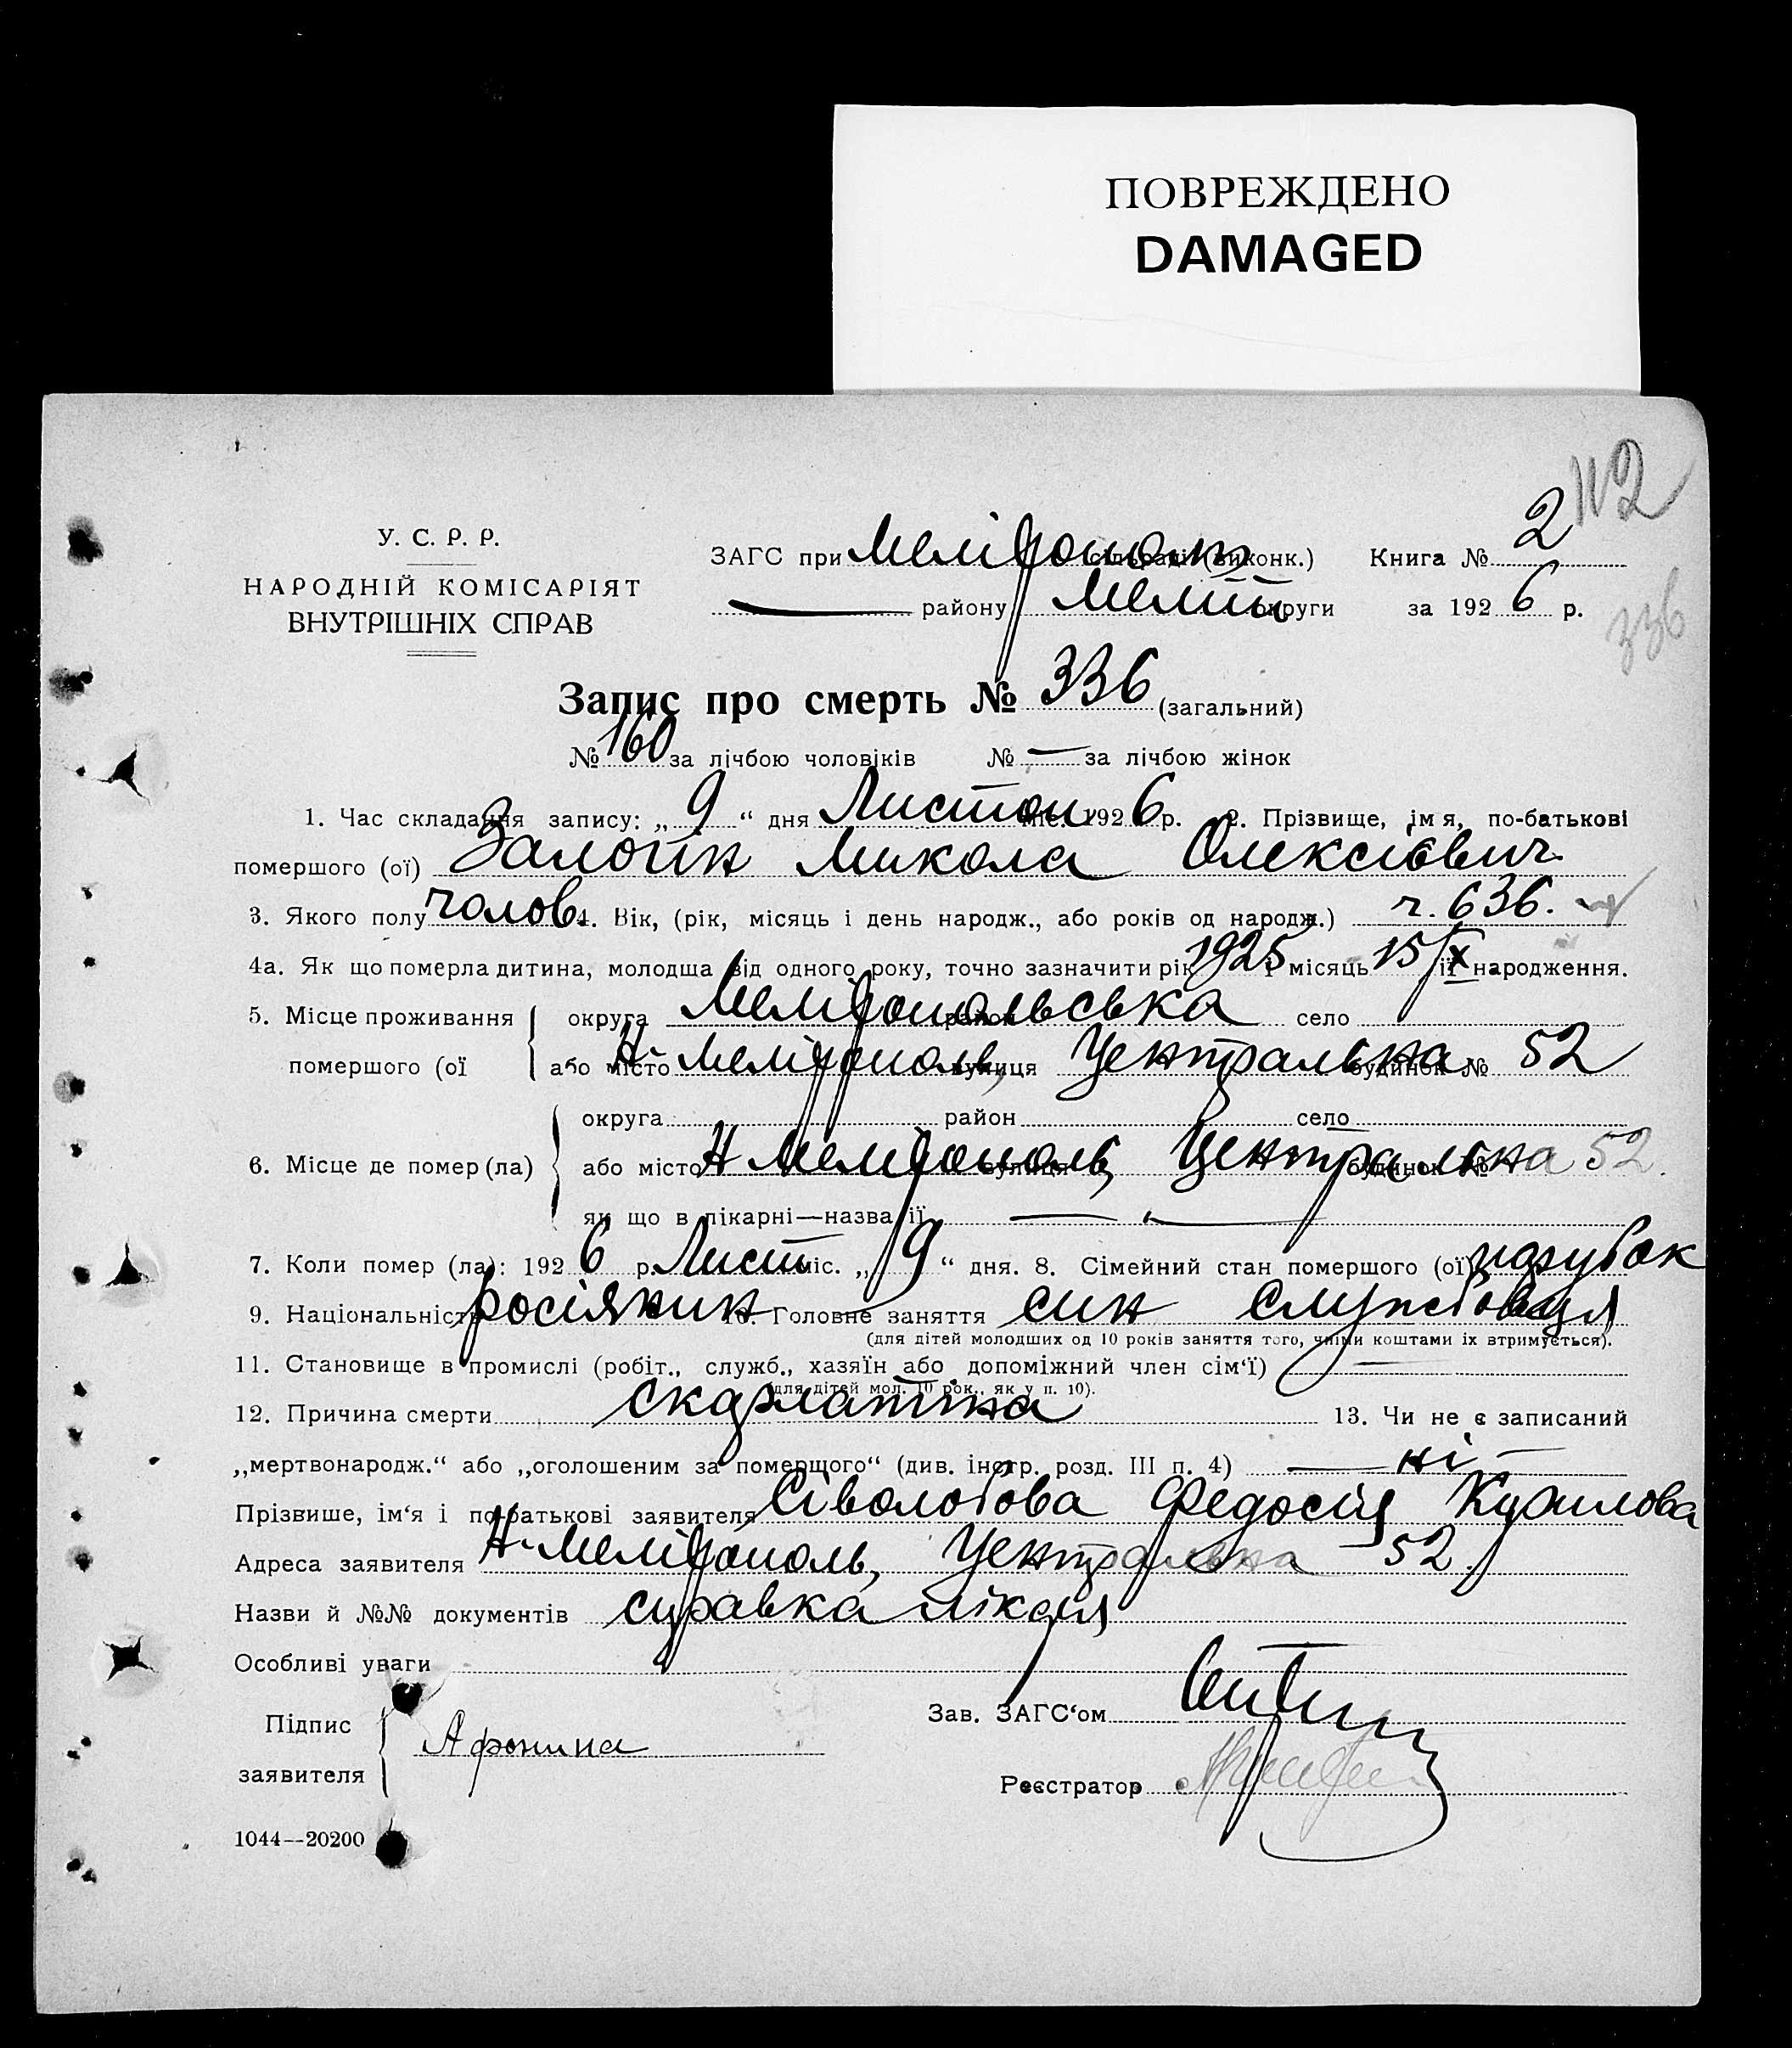 ПОВРЕЖДЕНО
DAMAGED
112
У. С. Р. Р.
НАРОДНІЙ КОМІСАРІЯТ
ВНУТРІШНІХ СПРАВ
ЗАГС при Меліфополь сільраді (виконк.) Книга № 2
— району Меліт округи за 1926 р.
336
Запис про смерть № 336 (загальний)
№ 160 за лічбою чоловіків № — за лічбою жінок
1. Час складання запису: „ 9 “ дня Листоп міс. 1926 р. 2. Прізвище, ім я, по-батькові
помершого (ої) Микола Олексієвич
3. Якого полу чолов. 4. Вік, (рік, місяць і день народж., або років од народж.) г. 636.
4а. Як що померла дитина, молодша від одного року, точно зазначити рік 1925 і місяць 15/X її народження.
5. Місце проживання округа Меліфопольська район село
помершого (ої або місто Н-Меліфополь, вулиця Центральна будинок № 52
округа район село
6. Місце де помер (ла) або місто Н Меліфополь, вулиця Центральна будинок № 52.
як що в лікарні—назва її —
7. Коли помер (ла): 1926 р. Лист міс. „ 9 “ дня. 8. Сімейний стан помершого (ої) парубок
9. Національність росіянин 10. Головне заняття син службовця
(для дітей молодших од 10 років заняття того, чиїми коштами їх втримується).
11. Становище в промислі (робіт., служб., хазяїн або допоміжний член сім‘ї) —
(для дітей мол. 10 рок., як у п. 10).
12. Причина смерти скарлатіна 13. Чи не є записаний
„мертвонародж.“ або „оголошеним за померщого“ (див. інстр. розд. III п. 4) — ні —
Прізвише, ім‘я і по-батькові заявителя Сіволобова Федосія
Адреса заявителя Н-Меліфополь, Центральна 52.
Назви й №№ документів справка лікаря
Особливі уваги
Підпис
заявителя Афонина
Зав. ЗАГС‘ом
Реєстратор
1044—20200